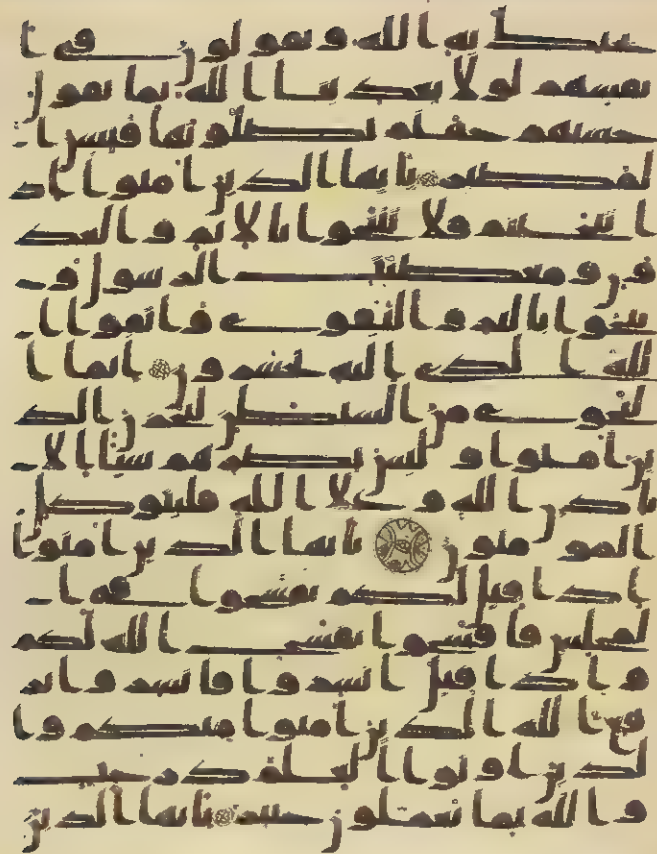 يحيك به الله ويقولون في ا
نفسهم لولا يعذبنا الله بما نقول
حسبهم جهنم يصلونها فبئس ا
لمصير يايها الذين امنوا اذ
ا تنجيتم فلا تتنجوا بالاثم والعد
ون ومعصيت الرسول و
تنجوا بالبر والتقوى واتقوا ا
لله الذي اليه تحشرون انما ا
لنجوى من الشيطن ليحزن الذ
ين امنوا وليس بضارهم شيئا الا
باذن الله وعلى الله فليتوكل
المومنون يايها الذين امنوا
اذا قيل لكم تفسحوا في ا
لمجلس فافسحوا يفسح الله لكم
واذا قيل انشزوا فانشزوا ير
فع الله الذين امنوا منكم وا
لذين اوتوا العلم درجت
والله بما تعملون خبير يايها الذين